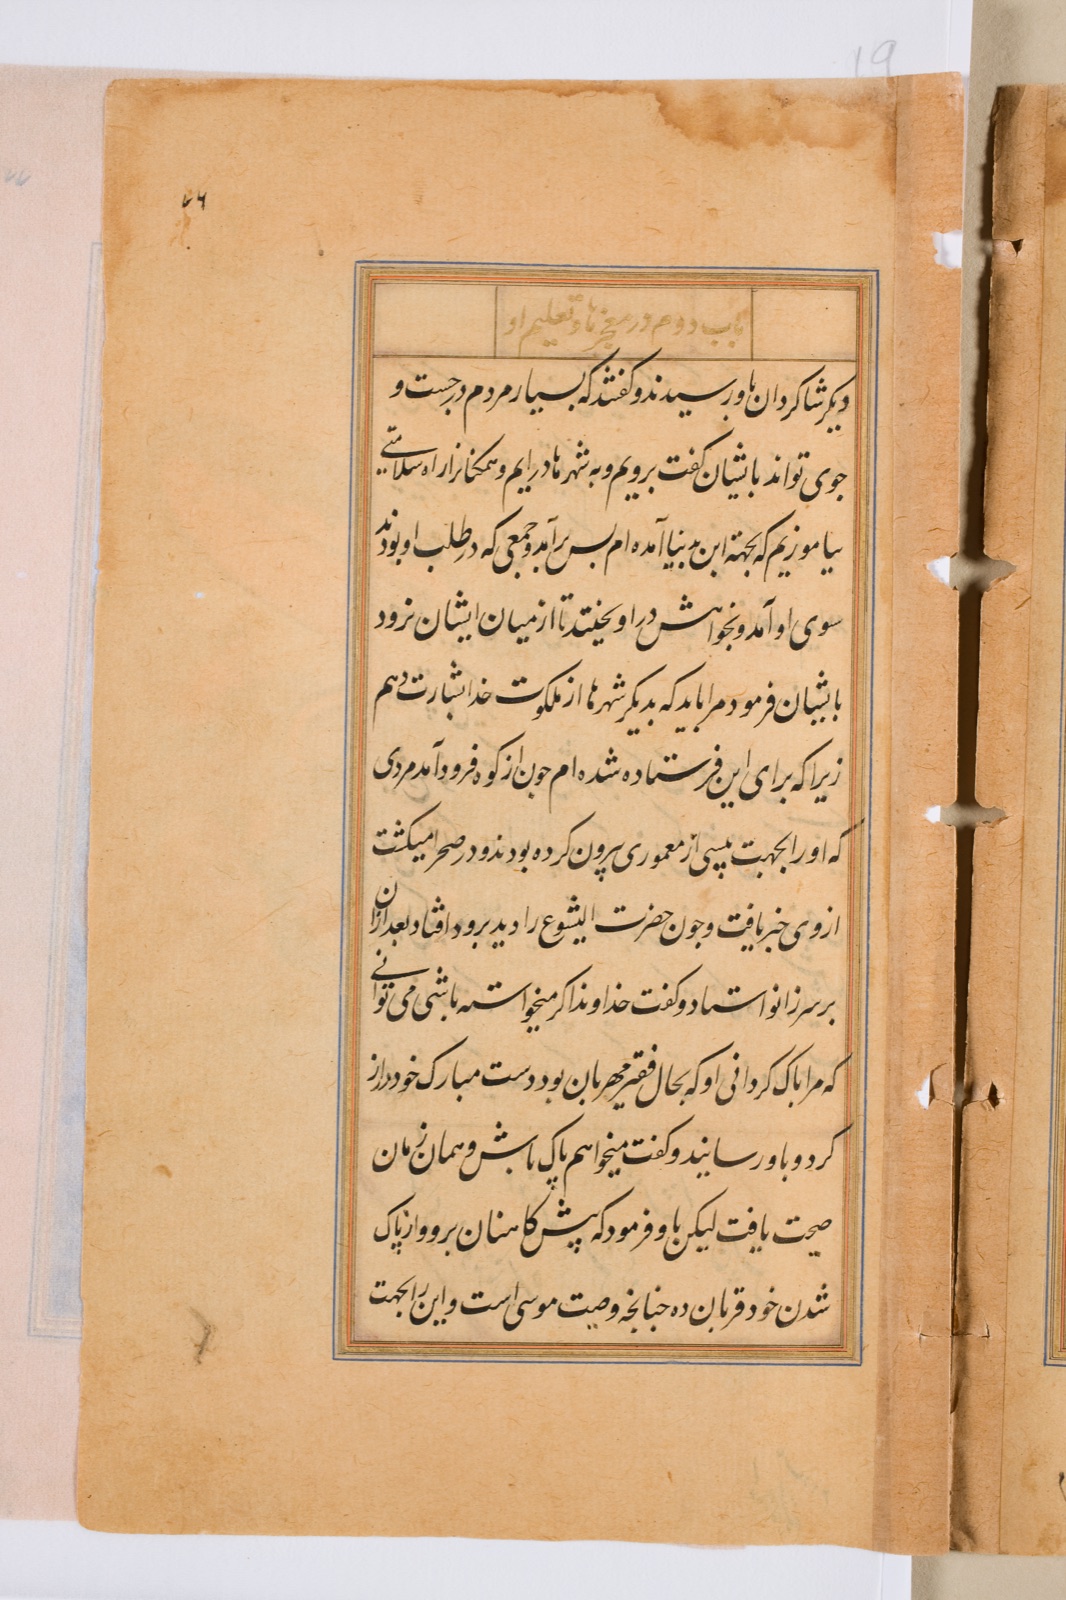 19
۷۶
باب دوم در معجزها و تعلیم او
دیکر شاکردان باو رسیدند و کفتند که بسیار مردم در جست و
جوی تواند بایشان کفت برویم و به شهرها درایم و همکنانرا راه سلامتی
بیاموزیم که بجهته این بدنیا آمده ام بس برآمد و جمعی که در طلب او بودند
سوی او آمدند و بخواهش در اویختند تا از میان ایشان نرود
بایشان فرمود مرا باید که بدیکر شهرها از ملکوت خدا بشارت دهم
زیرا که برای این فرستاده شده ام جون از کوه فرود آمد مردی
که او را بجهت پیسی از معموری بیرون کرده بودند و در صحرا میکشت
از وی خبر یافت و جون حضرت ایشوع را دید برو در افتاد بعد ازان
بر سر زانو استاد و کفت خداوندا کر میخواسته باشی می توانی
که مرا باک کردانی او که بحال فقیر مهربان بود دست مبارک خود دراز
کرد و باو رسانید و کفت میخواهم پاک باش و همان زمان
صحت یافت لیکن باو فرمود که پیش کاهنان برو و از پاک
شدن خود قربان ده جنانجه وصیت موسی است و این را بجهت